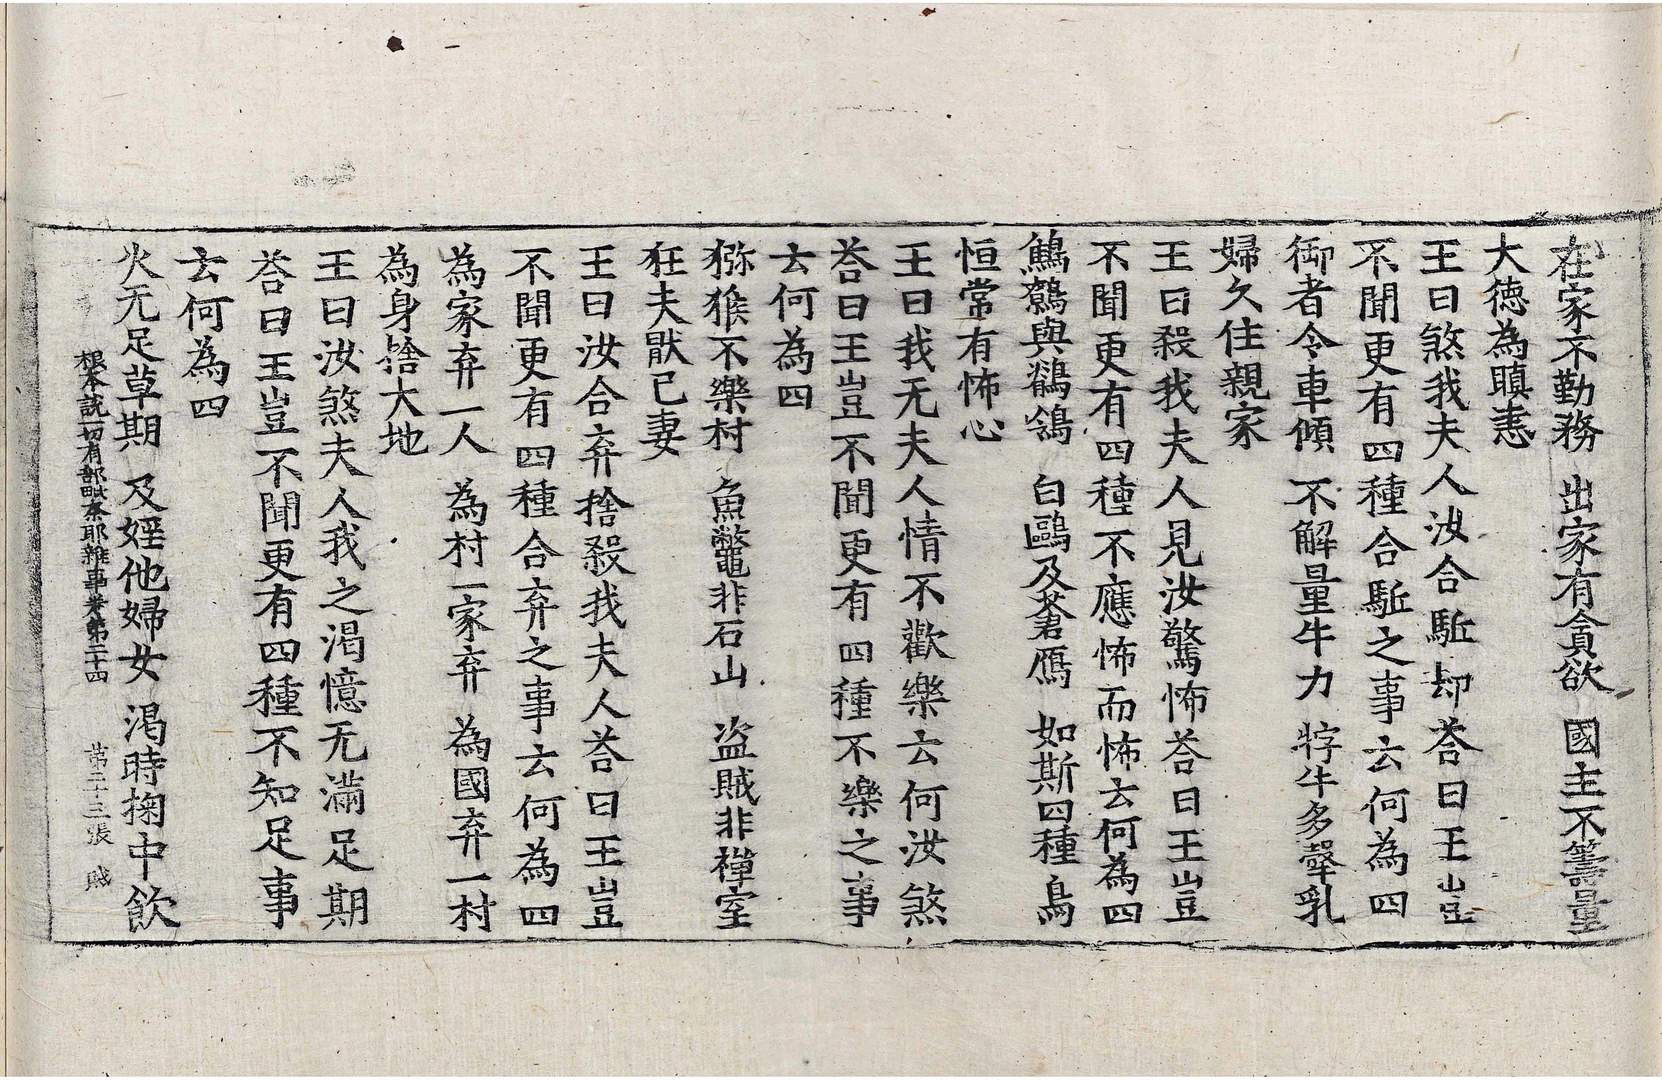 在家不勤務　出家有貪欲　國主不籌量
大德為瞋恚
王曰煞我夫人汝合駈却荅曰王豈
不聞更有四種合駈之事云何為四
御者令車傾　不解量牛力　牸牛多𤛗乳
婦久住親家
王曰殺我夫人見汝驚怖荅曰王豈
不聞更有四種不應怖而怖云何為四
鷦鷯與鶺鴒　白鷗及蒼鴈　如斯四種鳥
恒常有怖心
王曰我无夫人情不歡樂云何汝煞
荅曰王豈不聞更有四種不樂之事
云何為四
猕猴不樂村　魚鼈非石山　盜賊非禪室
狂夫猒己妻
王曰汝合弃捨殺我夫人荅曰王豈
不聞更有四種合弃之事云何為四
為家弃一人　為村一家弃　為國弃一村
為身捨大地
王曰汝煞夫人我之渴憶无滿足期
荅曰王豈不聞更有四種不知足事
云何為四
火无足草期　及婬他婦女　渴時掬中飲
根本說一切有部毗奈耶雜事卷第二十四　第二十三張